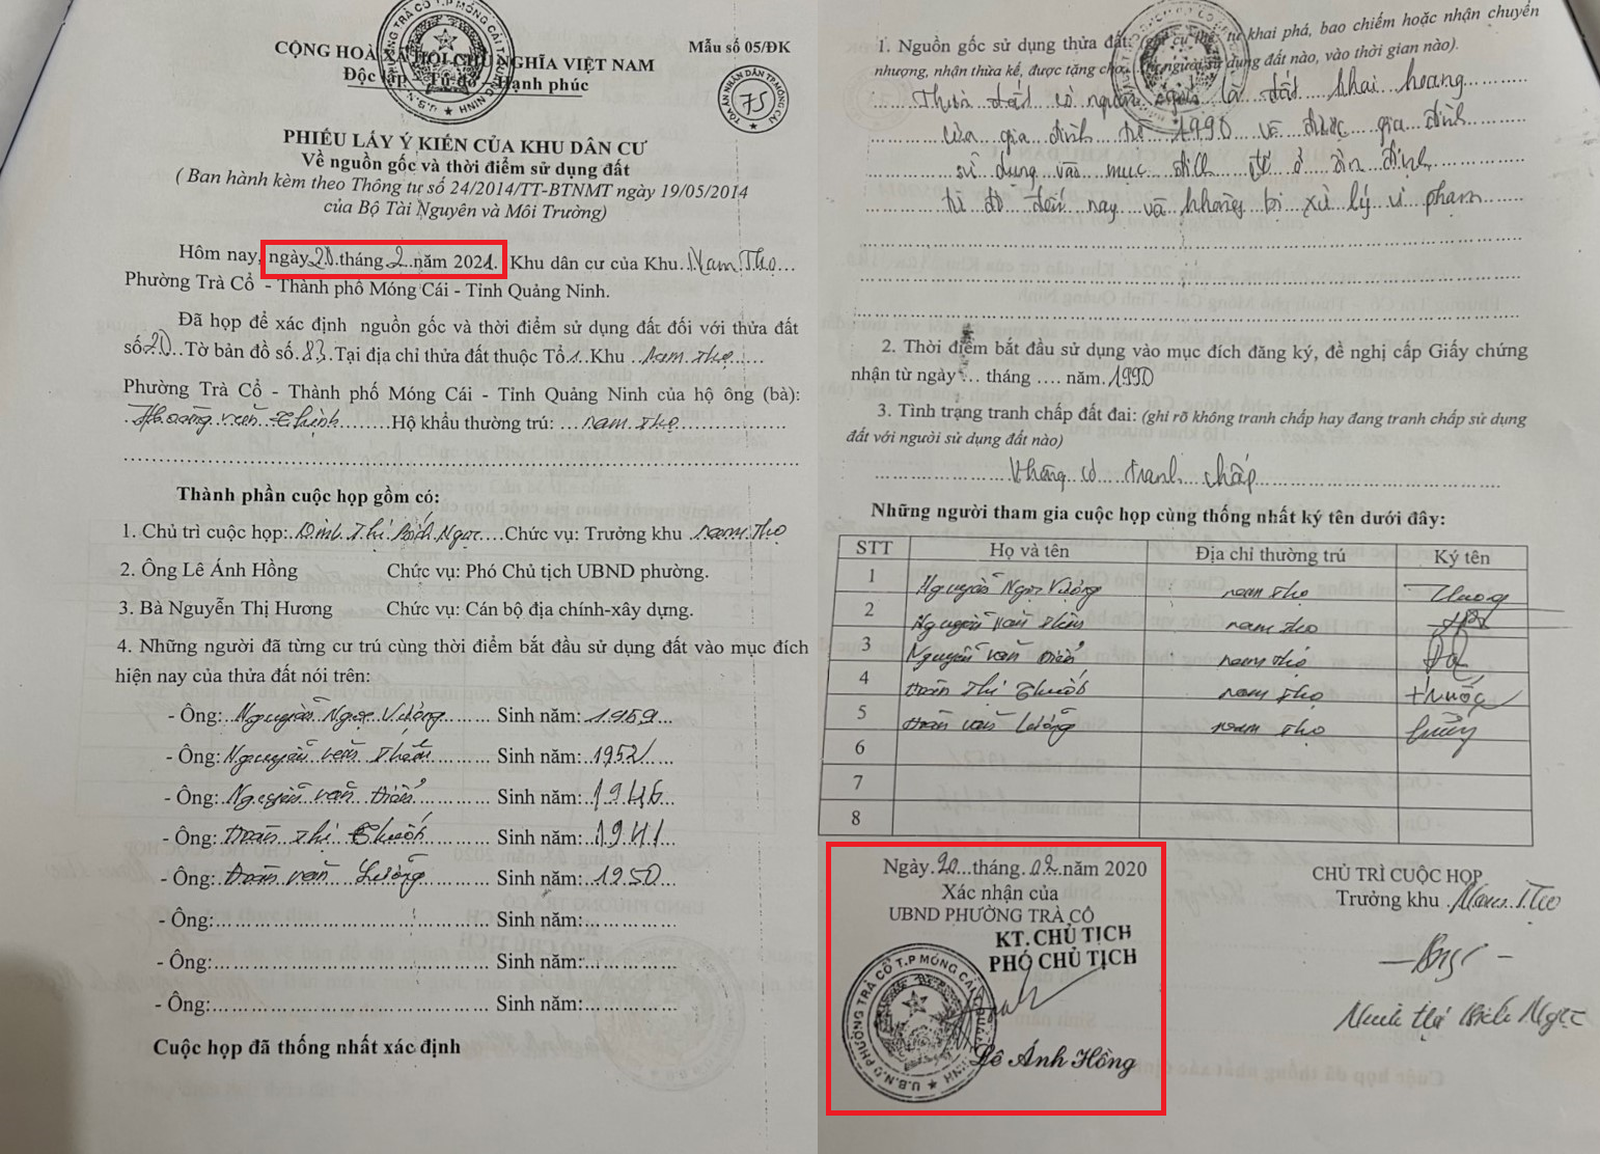 CỘNG HOÀ XÃ HỘI CHỦ NGHĨA VIỆT NAM
Mẫu số 05/ĐK
Độc lập - Tự do - Hạnh phúc
TÒA ÁN NHÂN DÂN TP MÓNG CÁI
75
PHIẾU LẤY Ý KIẾN CỦA KHU DÂN CƯ
Về nguồn gốc và thời điểm sử dụng đất
( Ban hành kèm theo Thông tư số 24/2014/TT-BTNMT ngày 19/05/2014
của Bộ Tài Nguyên và Môi Trường)
Hôm nay, ngày 20 tháng 2 năm 2021. Khu dân cư của Khu Nam Thọ
Phường Trà Cổ - Thành phố Móng Cái - Tỉnh Quảng Ninh.
Đã họp để xác định nguồn gốc và thời điểm sử dụng đất đối với thửa đất
số 20 Tờ bản đồ số 83 Tại địa chỉ thửa đất thuộc Tổ 1 Khu Nam Thọ
Phường Trà Cổ - Thành phố Móng Cái - Tỉnh Quảng Ninh của hộ ông (bà):
Hoàng Văn Thịnh Hộ khẩu thường trú: Nam Thọ
Thành phần cuộc họp gồm có:
1. Chủ trì cuộc họp: Đinh Thị Bích Ngọc Chức vụ: Trưởng khu Nam Thọ
2. Ông Lê Ánh Hồng Chức vụ: Phó Chủ tịch UBND phường.
3. Bà Nguyễn Thị Hương Chức vụ: Cán bộ địa chính-xây dựng.
4. Những người đã từng cư trú cùng thời điểm bắt đầu sử dụng đất vào mục đích
hiện nay của thửa đất nói trên:
- Ông: Nguyễn Ngọc Vường Sinh năm: 1959
- Ông: Nguyễn Văn Sinh năm: 1952
- Ông: Nguyễn Văn Điển Sinh năm: 1946
- Ông: Đoàn Thị Thuốc Sinh năm: 1941
- Ông: Đoàn Văn Lưỡng Sinh năm: 1950
- Ông: Sinh năm:
- Ông: Sinh năm:
- Ông: Sinh năm:
Cuộc họp đã thống nhất xác định
1. Nguồn gốc sử dụng thửa đất: (ghi cụ thể, tự khai phá, bao chiếm hoặc nhận chuyển
nhượng, nhận thừa kế, được tặng cho người sử dụng đất nào, vào thời gian nào).
Thửa đất có nguồn gốc là đất khai hoang
của gia đình từ 1990 và được gia đình
sử dụng vào mục đích để ở ổn định
từ đó đến nay và không bị xử lý vi phạm
2. Thời điểm bắt đầu sử dụng vào mục đích đăng ký, đề nghị cấp Giấy chứng
nhận từ ngày ... tháng .... năm 1990
3. Tình trạng tranh chấp đất đai: (ghi rõ không tranh chấp hay đang tranh chấp sử dụng
đất với người sử dụng đất nào)
Không có tranh chấp
Những người tham gia cuộc họp cùng thống nhất ký tên dưới đây:
STT Họ và tên Địa chỉ thường trú Ký tên
1 Nguyễn Ngọc Vường Nam Thọ
2 Nguyễn Văn Nam Thọ
3 Nguyễn Văn Điển Nam Thọ
4 Đoàn Thị Thuốc Nam Thọ thuốc
5 Đoàn Văn Lưỡng Nam Thọ
6
7
8
Ngày 20 tháng 02 năm 2020
Xác nhận của
UBND PHƯỜNG TRÀ CỔ
KT. CHỦ TỊCH
PHÓ CHỦ TỊCH
U.B.N.D PHƯỜNG TRÀ CỔ T.P MÓNG CÁI T. QUẢNG NINH
Lê Ánh Hồng
CHỦ TRÌ CUỘC HỌP
Trưởng khu Nam Thọ
Đinh Thị Bích Ngọc